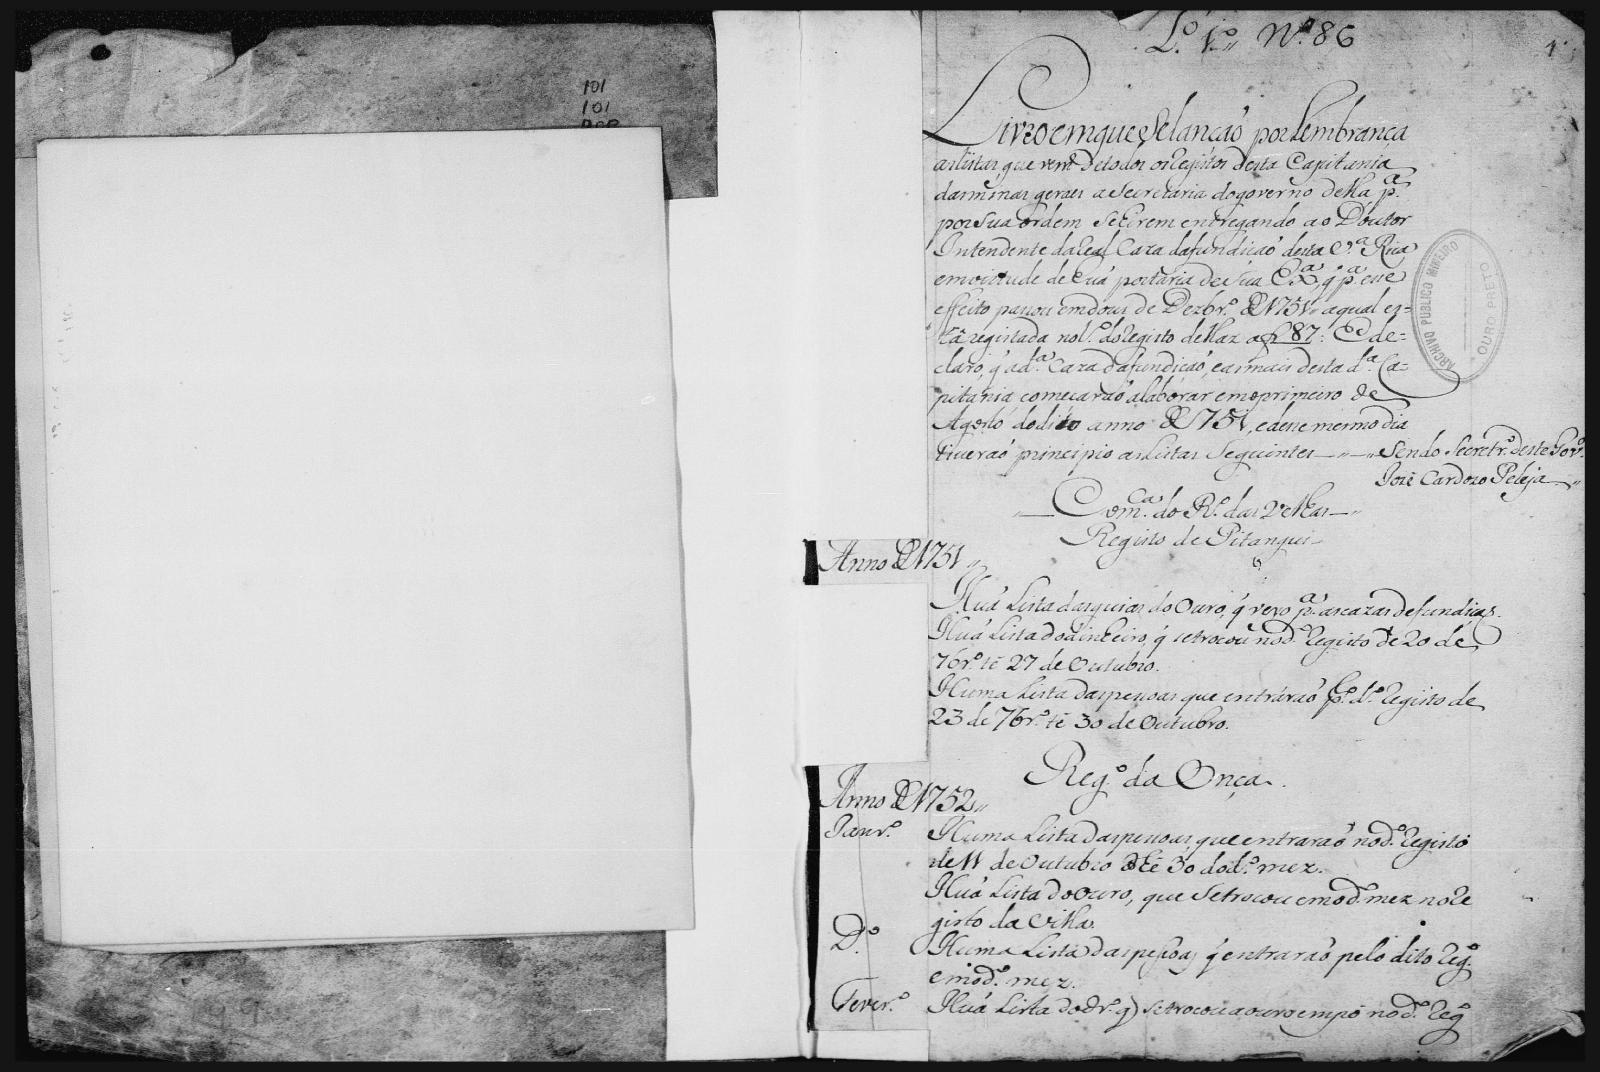 101
101
L.º 1.º N.º 86
1
Livro em que Se lançaõ por Lembrança
as listas que vem de todos os Registos desta Capitania
das minas geraes a Secretaria do governo della p.ª
por Sua ordem Se hirem entregando ao Doutor
Intendente da Real Caza da fundiçaõ desta V.ª Rica
em virtude de huá portaria de Sua Ex.ª q̃ p.ª esse
effeito passou em dous de Dezbr.º de 1751 a qual es=
tá registada no L.º do Registo dellas a f 87: E de=
claro, q̃ a d.ª Caza da fundiçaõ, e as mais desta d.ª Ca=
pitania começaraõ a laborar em o primeiro de
Agosto do dito anno de 1751, e desse mesmo dia
tiveraõ principio as Listas Seguintes — Sendo Secretr.º deste Gov.º
José Cardozo Peleja
Com.ca do R.º das Velhas
Registo de Pitangui
Anno de 1751
Huá Lista das guias do Ouro, q̃ veyo p.ª as cazas de fundiçaõ.
Huá Lista do dinheiro, q̃ se trocou no d.º Registo de 20 de
7br.º té 27 de Outubro.
Huma Lista das pessoas que entráraõ p.º d.º Registo de
23 de 7br.º té 30 de Outubro.
Reg.º da Onça.
Anno de 1752
Janr.º Huma Lista das pessoas que entraraõ no d.º Registo
de 11 de Outubro té 30 do d.º mez.
Huá Lista do Ouro, que Se trocou em o d.º mez no Re
gisto da Villa.
D.º Huma Lista das pessoas q̃ entraraõ pelo dito Reg.º
em o d.º mez.
Fever.º Huá Lista do dr.º q̃ Se trocou a ouro em pó no d.º Reg.º
ARCHIVO PUBLICO MINEIRO
OURO PRETO